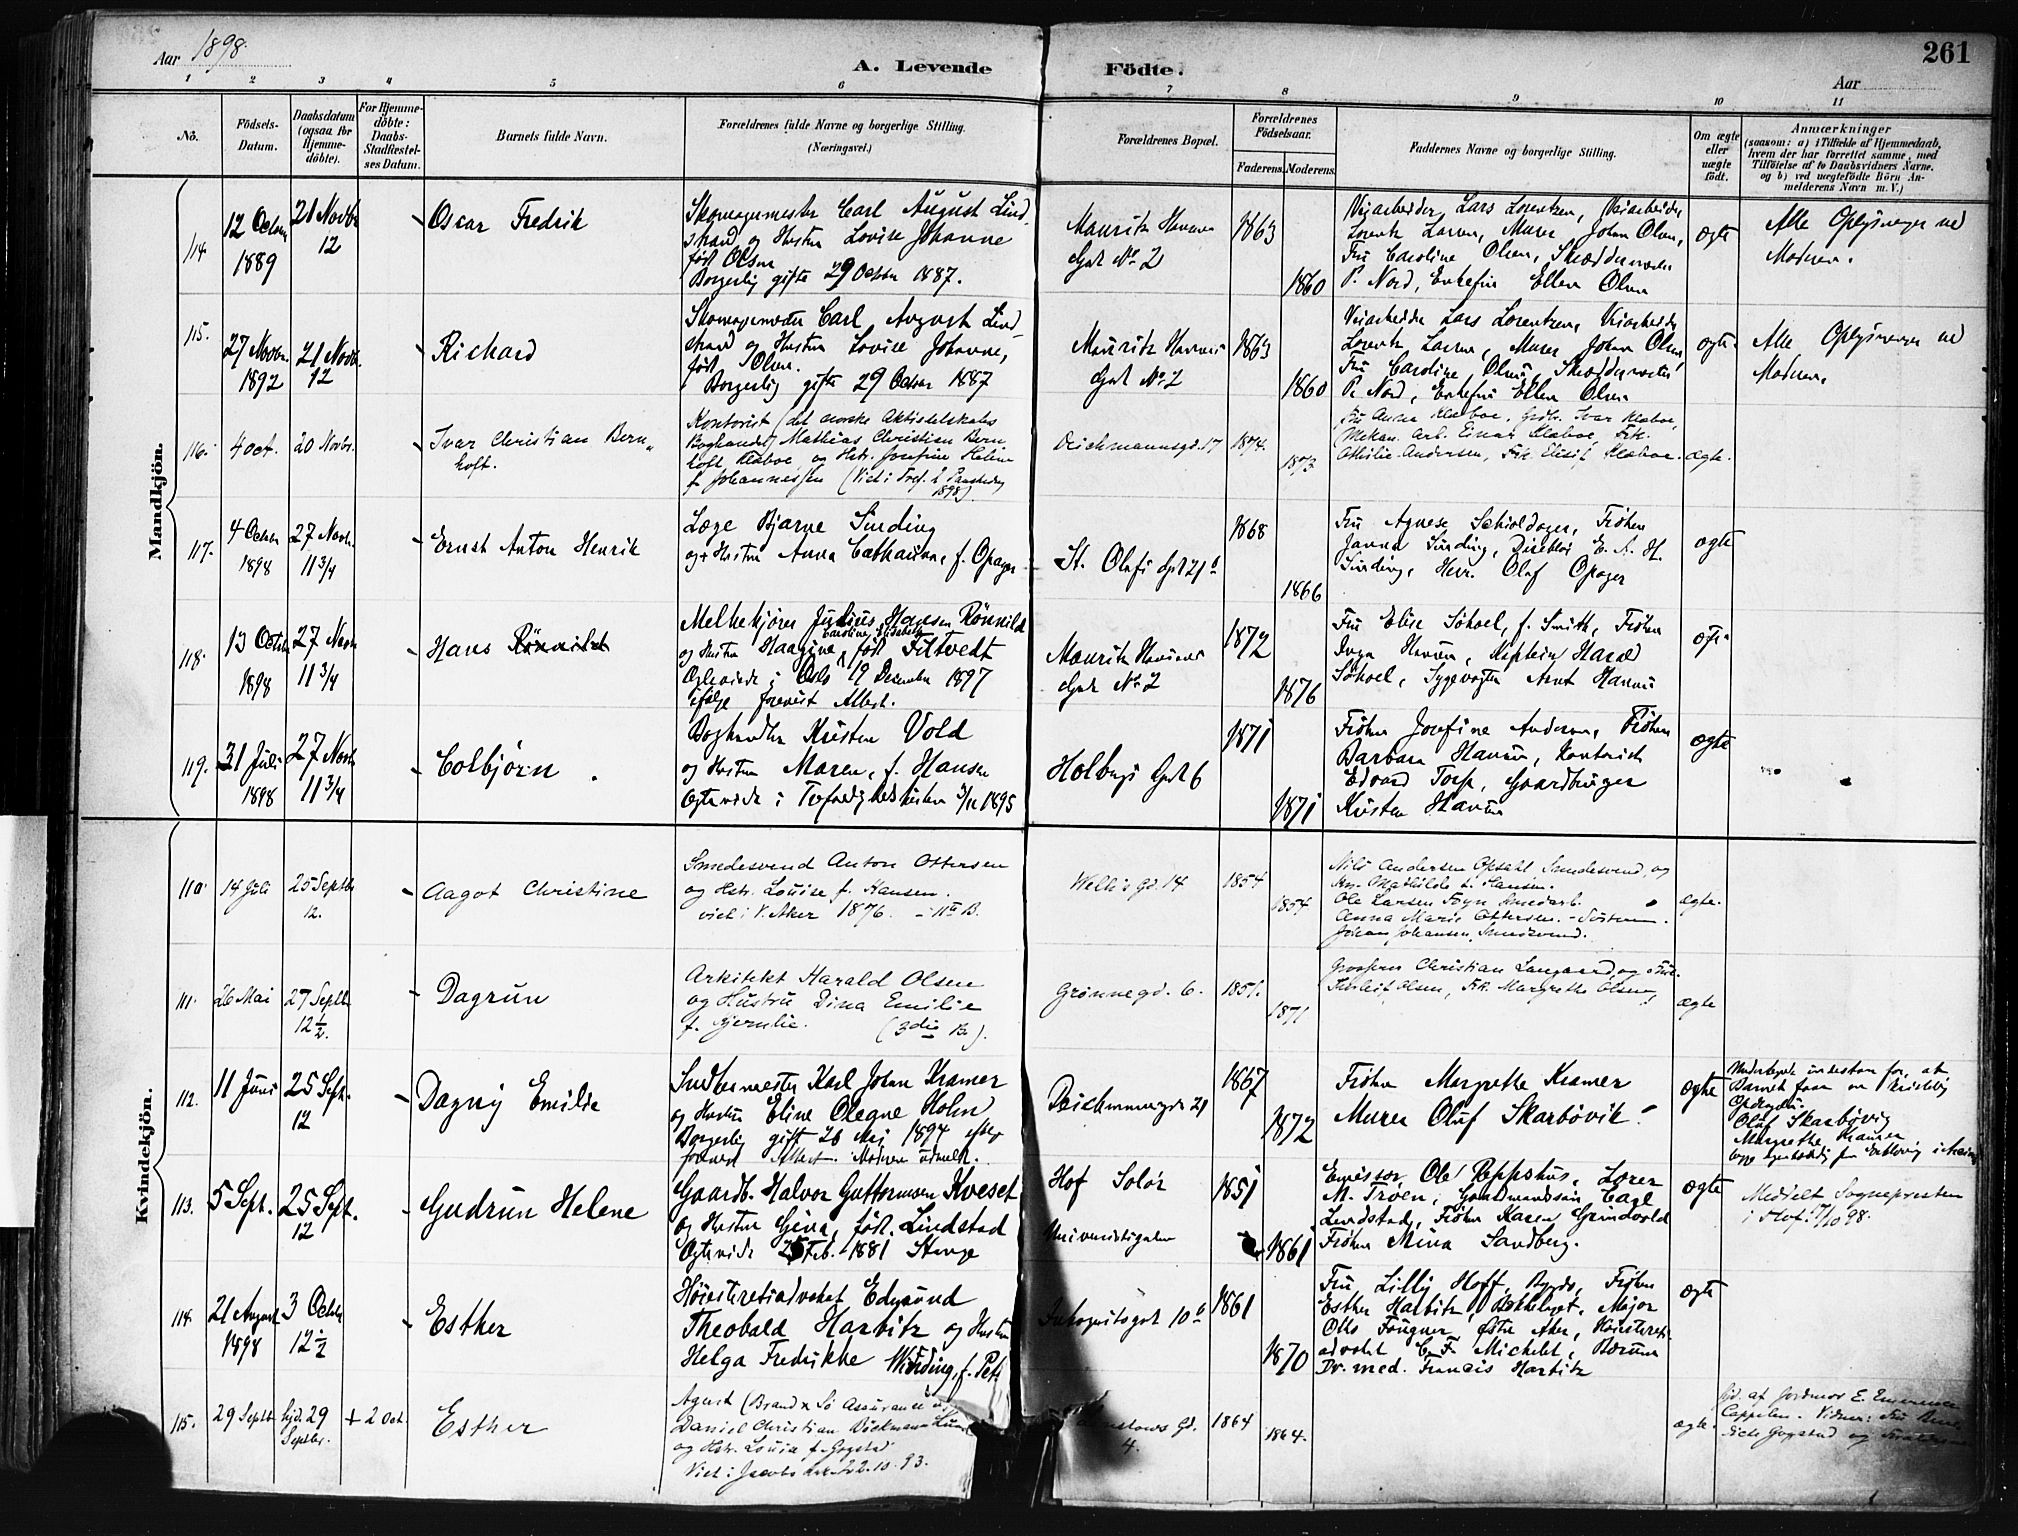 Aar 1898.
A. Levende Födte.
261
Aar
1 2 3 4 5 6 7 8 9 10 11
No.
Födsels-Datum.
Daabsdatum (ogsaa for Hjemme-döbte).
For Hjemme-döbte: Daabs-Stadfæstel-ses Datum.
Barnets fulde Navn.
Forældrenes fulde Navne og borgerlige Stilling.
(Næringsvei.)
Forældrenes Bopæl.
Forældrenes Födselsaar.
Faderens. Moderens.
Faddernes Navne og borgerlige Stilling.
Om ægte eller uægte født.
Anmærkninger
(saasom: a) i Tilfælde af Hjemmedaab,
hvem der har forrettet samme, med
Tilföielse af to Daabsvidners Navne,
og b) ved uægtefödte Börn An-
melderens Navn m. V.)
Mandkjön.
114.
12 Octbr
1889
21 Novbr
12
Oscar Fredrik
Skomagermester Carl August Lind
strand og Hustru Lovise Johanne
født Olsen
Borgerlig gifte 29 Octbr 1887.
Mauritz Hansens
Gade No 2
1863
1860
Veiarbeider Lars Lorentzen, Veiarbeider
Lorentz Larsen, Murer Johan Olsen,
Fru Caroline Olsen, Skræddermester
P. Nord, Enkefru Ellen Olsen
ægte
Alle Oplysninger ved
Moderen.
115.
27 Novbr.
1892
21 Novbr.
12
Richard
Skomagermester Carl August Lind
strand og Hustru Lovise Johanne,
født Olsen.
Borgerlig gifte 29 Octbr 1887
Mauritz Hansens
Gade No 2
1863
1860
Veiarbeider Lars Lorentzen, Veiarbeider
Lorentz Larsen, Murer Johan Olsen,
Fru Caroline Olsen, Skræddermester
P. Nord, Enkefru Ellen Olsen
ægte
Alle Oplysninger ved
Moderen.
116.
4 Oct.
20 Novbr.
Ivar Christian Bern„
hoft.
Kontorist (det norske Aktieselskabs
Boghandel) Mathias Christian Bern
hoft Klaboe og Hstr. Josefine Helene
f. Johannessen
1898).
Deichmannsgd. 17
1874.
1873
Fru Anna Klaboe, Ivar Klaboe,
Mekan. Arb. Einar Klaboe, Frk.
Othilie Andersen, Frk. Klaboe.
ægte.
117.
4 Octbr
1898
27 Novbr.
11 3/4
Ernst Anton Henrik
Læge Bjarne Sinding
og Hustru Anna Catharina, f. Opager
St. Olafs Gade 21
1868
1866
Fru Agnese Schioldager, Frøken
Janna Sinding, Direktør E. A. H.
Sinding, Herr Oluf Opager
ægte
118.
13 Octbr
1898
27 Novbr
11 3/4
Hans Rönnild
Melkekjører Julius Hansen Rönnild
Caroline Elisabeth
og Hustru Haagine født Tiltvedt
Ægteviede i Oslo 19 December 1897
ifølge forevist Attest.
Mauritz Hansens
Gade No 2
1872
1876
Fru Elise Söhoel, f. Smith, Frøken
Inga Hansen, Kaptein Harald
Söhoel, Sygevogter Arnt Hansen
ægte
119.
31 Juli
1898
27 Novbr
11 3/4
Colbjörn.
Boghandler Kristen Vold
og Hustru Maren, f. Hansen
Ægteviede i Trefoldighedskirken 3/11 1895
Holbergs Gade 6
1871
1871
Frøken Josefine Andersen, Frøken
Barbara Hansen, Kontorist
Edvard Torp, Gaardbruger
Kristen Hansen
ægte
Kvindekjön.
110.
14 Juli
25 Septbr
12.
Aagot Christine
Smedesvend Anton Ottersen
og Hstr. Louise f. Hansen.
viet i V. Aker 1876. - 11te B.
Welhs Gd. 14
1854
1854
Nils Andersen Opsahl, Smedesvend, og
Mathilde f. Hansen.
Ole Larsen Fogn Smedarb.
Anna Marie Ottersen.
Johan Johansen, Smedsvend.
ægte.
111.
26 Mai
27 Septbr
12 1/2.
Dagrun
Arkitekt Harald Olsen
og Hustru Dina Emilie
f. Bjernlie. (3die B.).
Grønnegd. 6.
1851.
1871
Grosserer Christian Langaard, og
Olsen, Frk. Margrethe Olsen,
ægte
112.
11 Juni
25 Sept.
12
Dagny Emilie
Karl Johan Kramer
og Hustru Eline Olegne Holm
Borgerlig gift 26 Maj 1894 efter
forevist Attest. Moderen udmeldt.
Deichmansgade 21
1867
1872
Frøken Margrethe Kramer
Murer Oluf Skarbövik.
ægte
Undertegnede indestaar for, at
Barnet faar en kristelig
Opdragelse.
Oluf Skarbövig
Margrethe Kramer
113.
5 Sept.
25 Sept.
12
Gudrun Helene
Gaardb. Halvor Guttormsen Kveset
og Hustru Gina, født Lindstad
Ægteviede 25 Feb. 1881 Stange
Hof Solör
Universitsgaten
1851
1861
Ole Peppshus, Lærer
M. Troen, Gaardmandssøn Carl
Lindstad, Frøken Karen Grindvold
Frøken Mina Sandberg.
ægte
Meddelt Sognepresten
i Hof. 7/10 98.
114.
21 August
1898
3 Octbr
12 1/2
Esther
Höiesteretsadvokat Edmund
Theobald Harbitz og Hustru
Helga Fredrikke Winding, f. Pet
10
1861
1870
Fru Lilly Hoff, Bygdø, Frøken
Esther Harbitz, Bekkelaget, Major
Otto Fougner, Østre Aker, Høiesterets-
advokat C. F. Michelet, Bærum
Dr. med. Francis Harbitz
ægte
115.
29 Septbr
hjd. 29
Septbr.
+ 2 Oct.
Esther
Agent (Brand & Sø Assurance
Daniel Christian Böckmann Lund
og Hstr. Louisa f. Gogstad
Viet i Jacobs Kirke 22.10.93.
Gd.
4.
1864
1864.
ægte.
hjd. af Jordmor E.
Cappelen. Vidner: Fru
Gogstad og